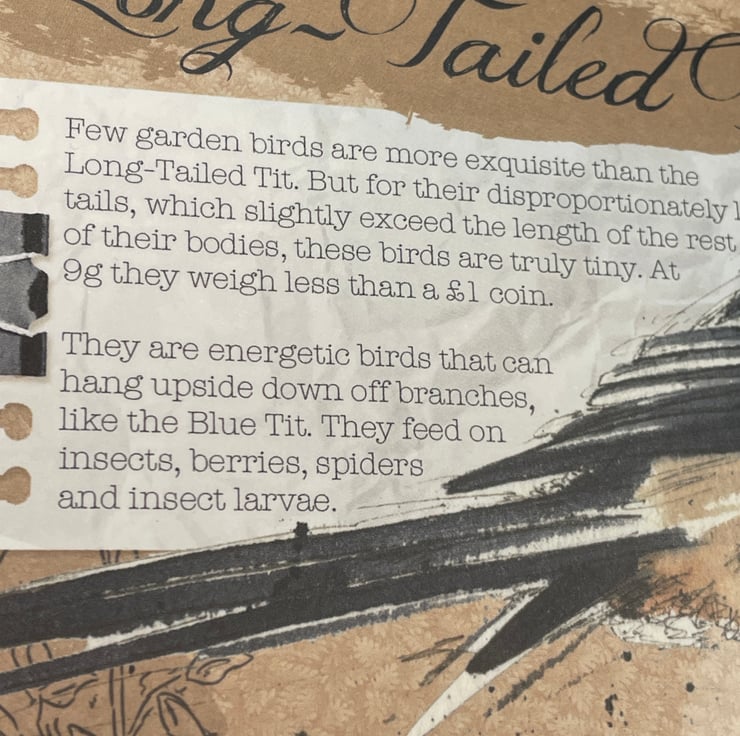 Long-Tailed
Few garden birds are more exquisite than the
Long-Tailed Tit. But for their disproportionately
tails, which slightly exceed the length of the rest
of their bodies, these birds are truly tiny. At
9g they weigh less than a £1 coin.
They are energetic birds that can
hang upside down off branches,
like the Blue Tit. They feed on
insects, berries, spiders
and insect larvae.